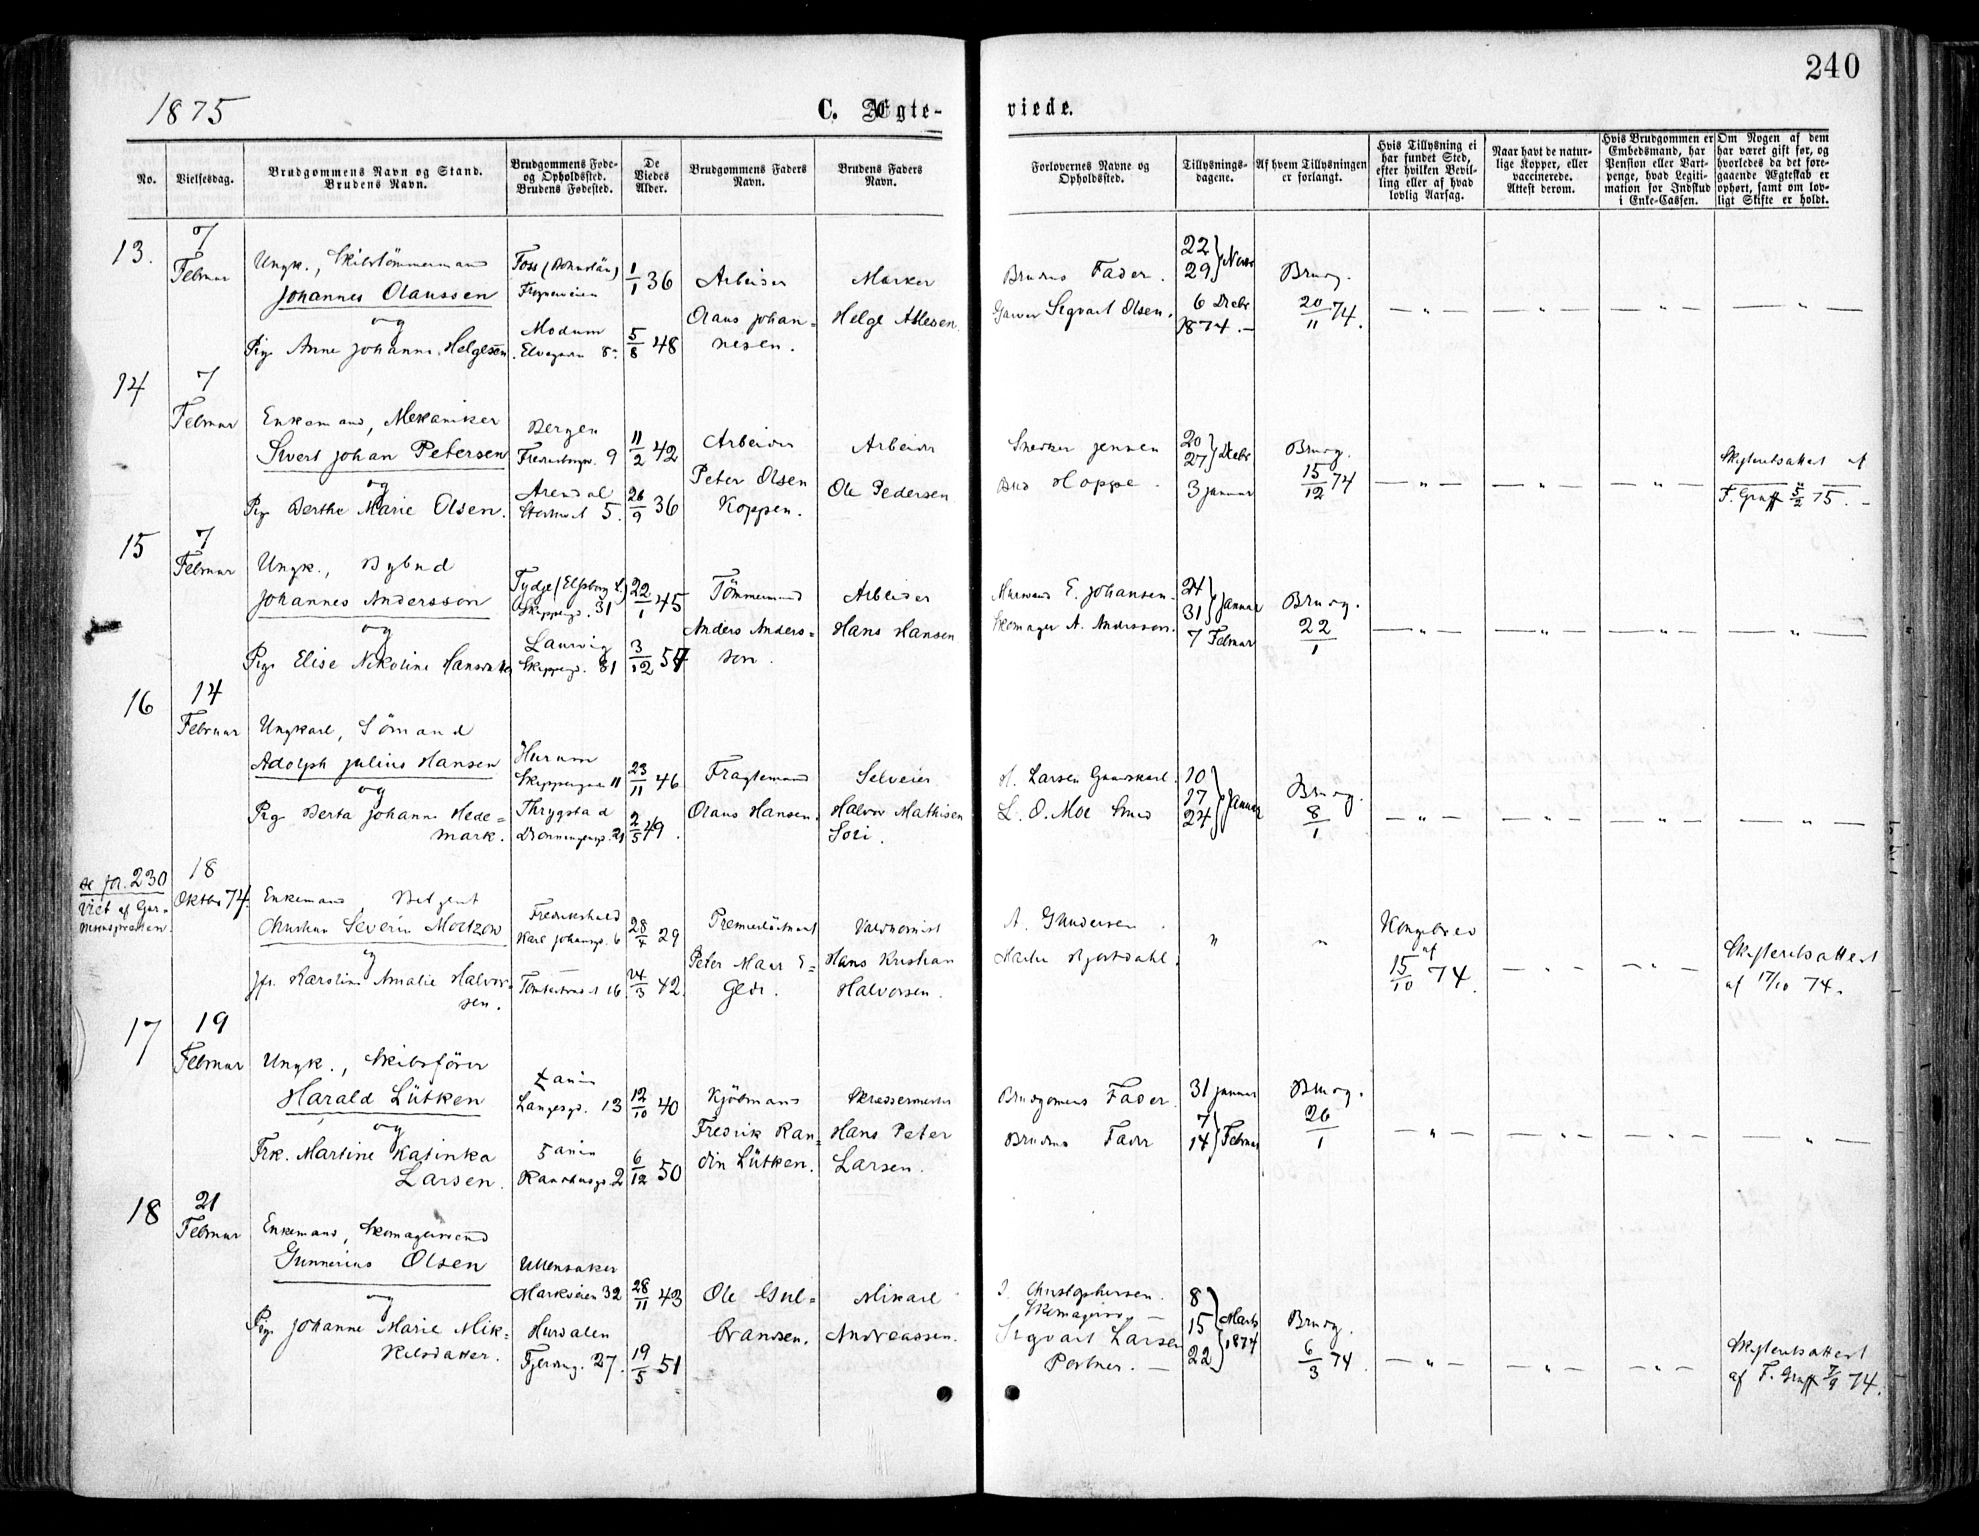 240
1875
C. Ægte-
viede.
No.
Vielsesdag.
Brudgommens Navn og Stand.
Brudens Navn.
Brudgommens Føde-
og Opholdssted.
Brudens Fødested.
De
Viedes
Alder.
Brudgommens Faders
Navn.
Brudens Faders
Navn.
Forlovernes Navne og
Opholdssted.
Tillysnings-
dagene.
Af hvem Tillysningen
er forlangt.
Hvis Tillysning ei
har fundet Sted,
efter hvilken Bevil-
ling eller af hvad
lovlig Aarsag.
Naar havt de natur-
lige Kopper, eller
vaccinerede.
Attest derom.
Hvis Brudgommen er
Embedsmand, har
Pension eller Vart-
penge, hvad Legiti-
mation for Indskud
i Enke-Cassen.
Om Nogen af dem
har været gift før, og
hvorledes da det fore-
gaaende Ægteskab er
ophørt, samt om lov-
ligt Skifte er holdt.
13.
7
Februar
Ungk., Skibstömmermand
Johannes Olaussen
og
Pige Anne Johanne Helgesen
Foss (Bohuslän)
Frognerveien
Modum
Elvegaden 8
1/1 36
5/8 48
Arbeider
Olaus Johan=
nesen.
Marker
Helge Ablesen
Brudens Fader.
Garver Sigvart Olsen.
22
29 } Novbr
6 Decbr
1874.
Brudg.
20/11 74.
14
7
Februar
Enkemand, Mekaniker
Sivert Johan Petersen
og
Pige Berthe Marie Olsen.
Bergen
Fredensborgv. 9
Arendal
5.
11/2 42
26/9 36
Arbeider
Peter Olsen
Koppen.
Arbeider
Ole Pedersen
Snedker Jensen
Bud Hoppe.
20
27 } Decbr
3 Januar
Brudg.
15/12 74
Skifteretsattest af
F. Graff 5/2 75.
15
7
Februar
Ungk., Bybud
Johannes Andersson
og
Pige Elise Nikoline Hansen
Tydje (Elfsborg L.)
Skipperg. 31
Laurvig
Skipperg. 31
22/1 45
3/12 54
Tömmermand
Anders Anders=
son.
Arbeider
Hans Hansen
Murmand E. Johansen.
Skomager A. Andersson.
24
31 } Januar
7 Februar
Brudg.
22/1
16
14
Februar
Ungkarl, Sömand
Adolph Julius Hansen
og
Pige Berta Johanne Hede=
mark.
Hurum
Skippergaden 11
Thrygstad
Dronningensg. 21
23/11 46
2/5 49.
Fragtemand
Olaus Hansen.
Selveier
Halvor Mathisen
H. Larsen Gaardskarl.
L. O. Moe Smed
10
17
24 } Januar
Brudg.
8/1
se fol. 230
Viet af Gar-
nisonspræsten.
18
Oktbr 74.
Enkemand, Betjent
Christian Severin Moltzow
og
Jfr. Karoline Amalie Halvor
sen.
Fredrikshald
Karl Johansg. 6
16
28/4 29
24/3 42.
Premierlöitnant
Peter Maur E=
gede.
Hans Kristian
Halvorsen.
A. Gundersen
Martin Hjortdahl.
Kongebrev
af
15/10 74.
Skifteretsattest
af 17/10 74.
17
19
Februar
Ungk., Skibsförer
Harald Lütken
og
Frk. Martine Katinka
Larsen.
Xania
Langesgd. 13
Xania
Raadhusgd. 2
12/10 40
6/12 50
Kjöbmand
Fredrik Ran=
din Lütken.
Skreddermester
Hans Peter
Larsen.
Brudgomens Fader
Brudens Fader
31 Januar
7
14 } Februar
Brudg.
26/1
18
21
Februar
Enkemand, Skomagersvend
Gunnerius Olsen
og
Pige Johanne Marie Mik=
kelsdatter.
Ullensaker
Markveien 32
Hurdalen
Fjerdingg. 27.
28/11 43
19/5 51
Ole Gul=
brandsen.
Mikael
Andreassen.
J. Christophersen.
Skomagersv.
Sigvart Larsen
Portner.
8
15
22 } Marts
1874
Brudg.
6/3 74
Skifteretsattest
af F. Graff 7/9 74.